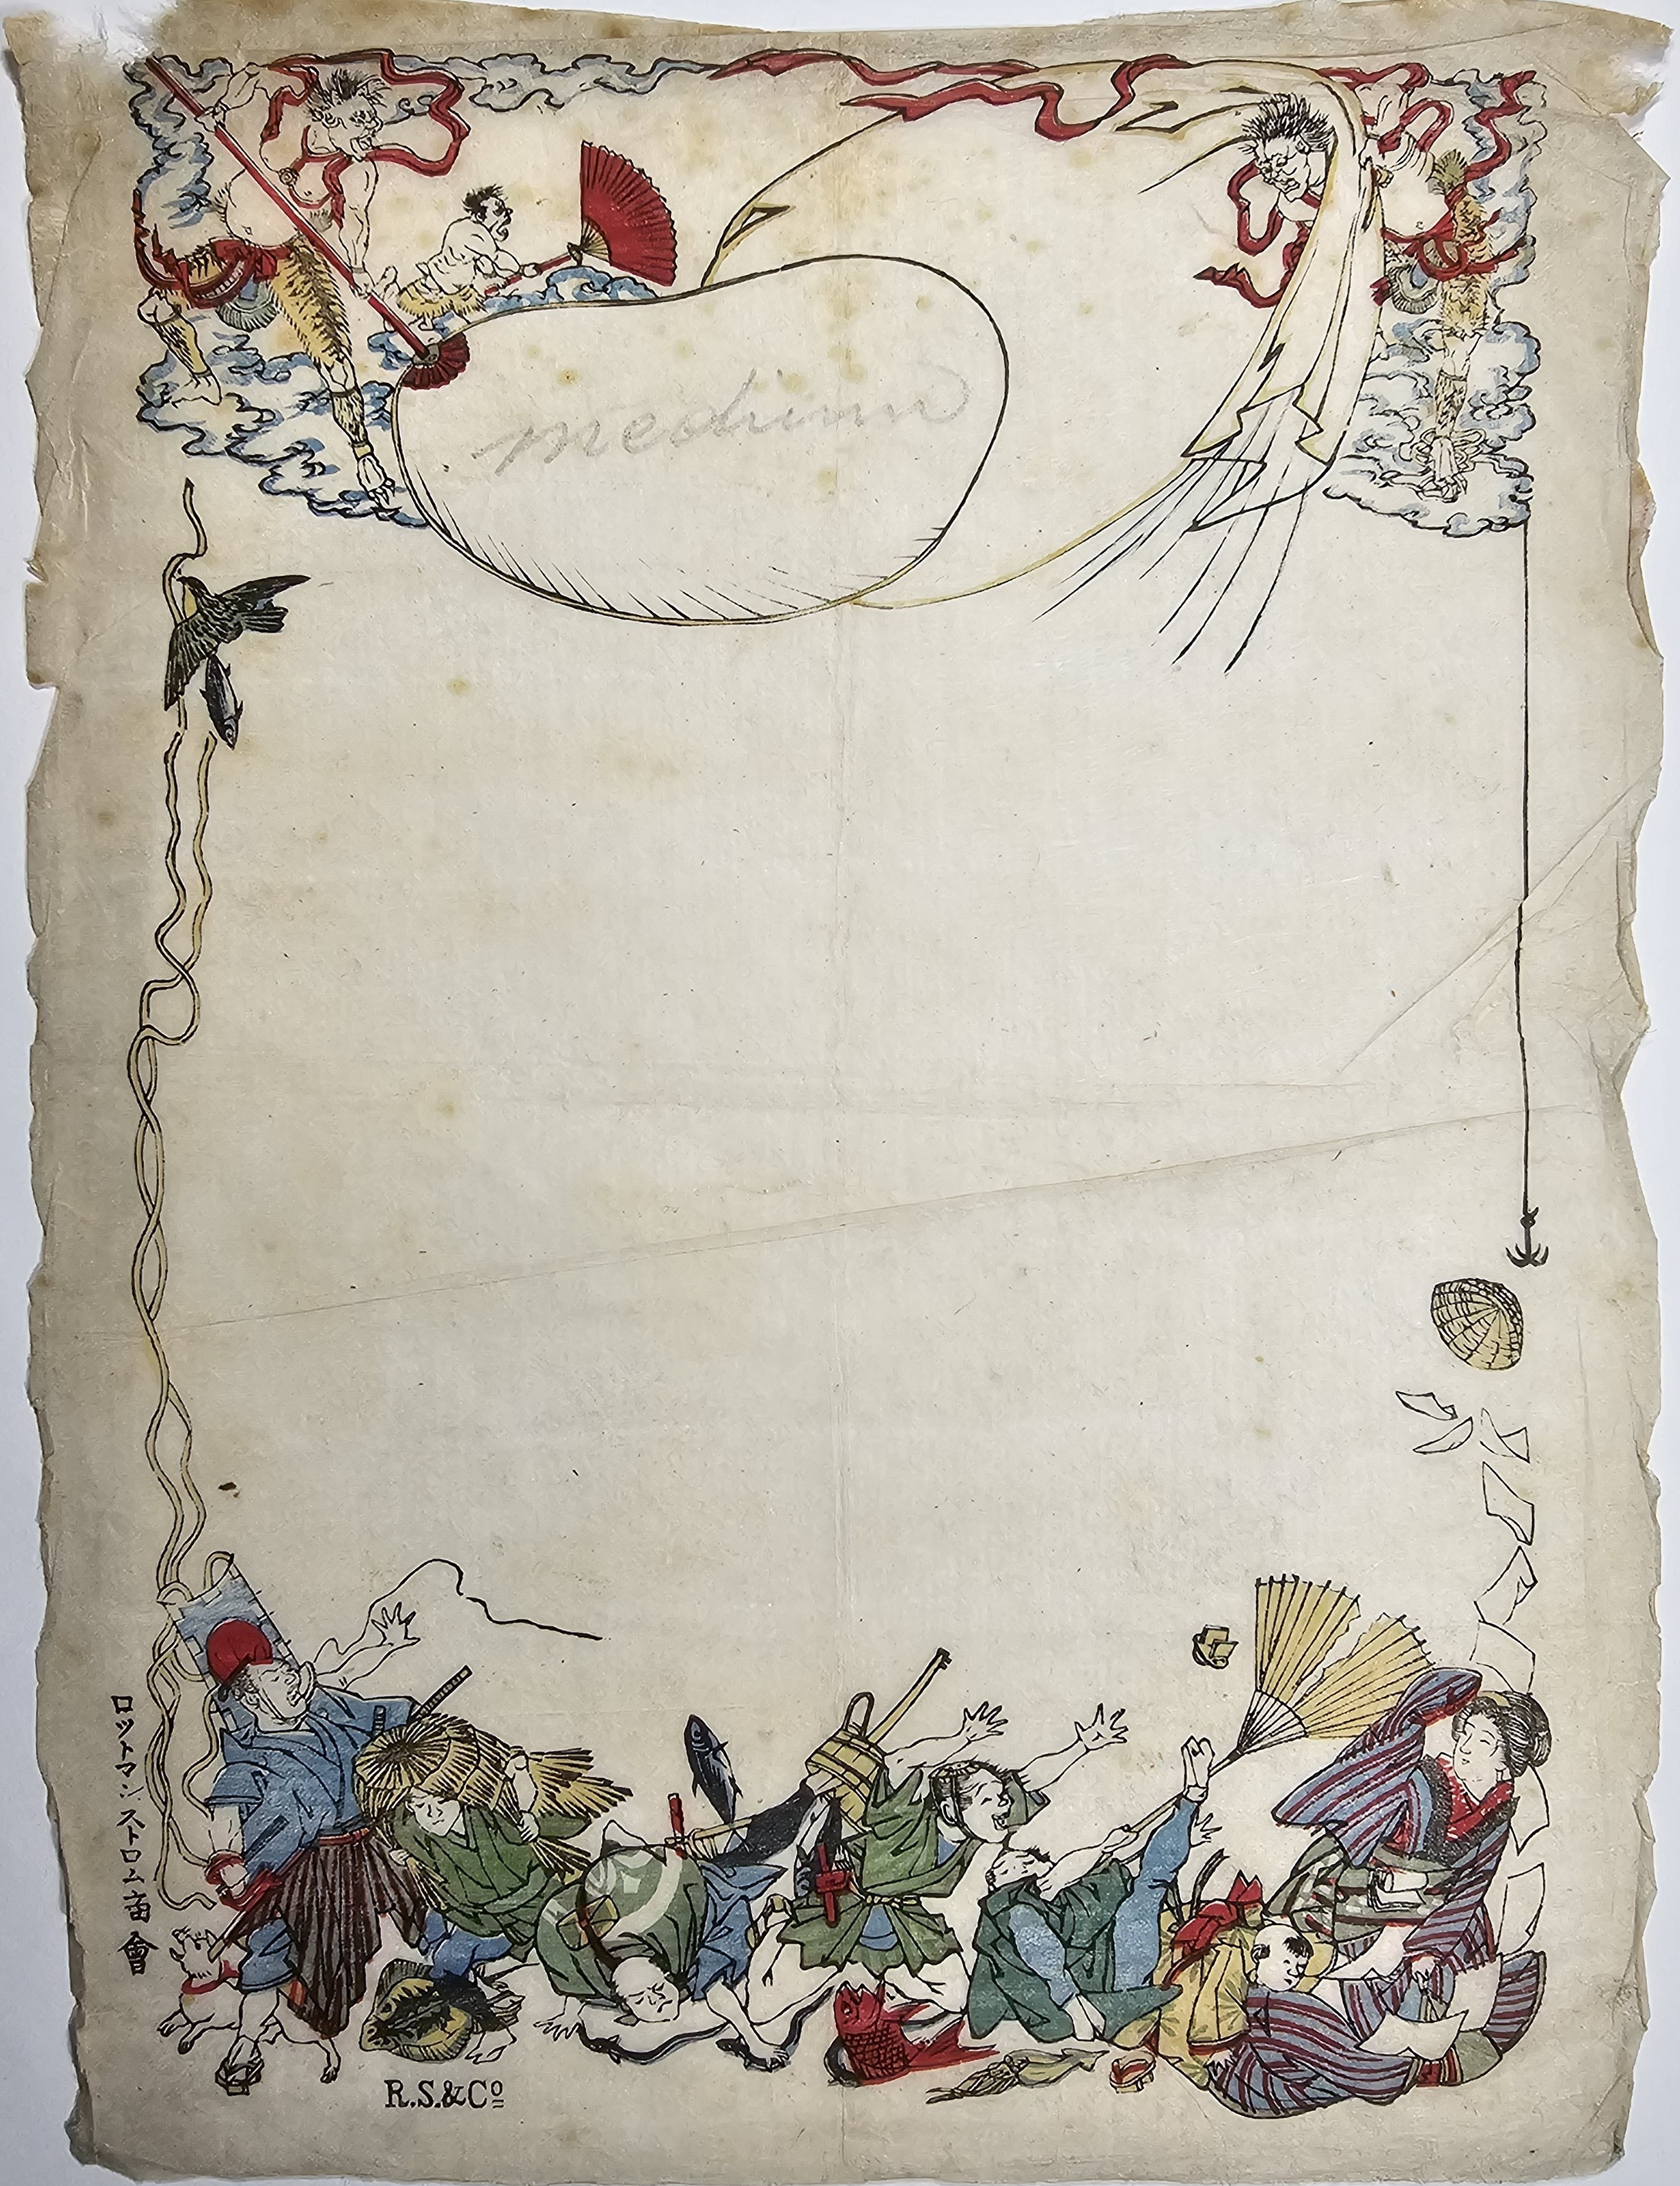 medium
ロットマンストロム商會
R.S.&Co